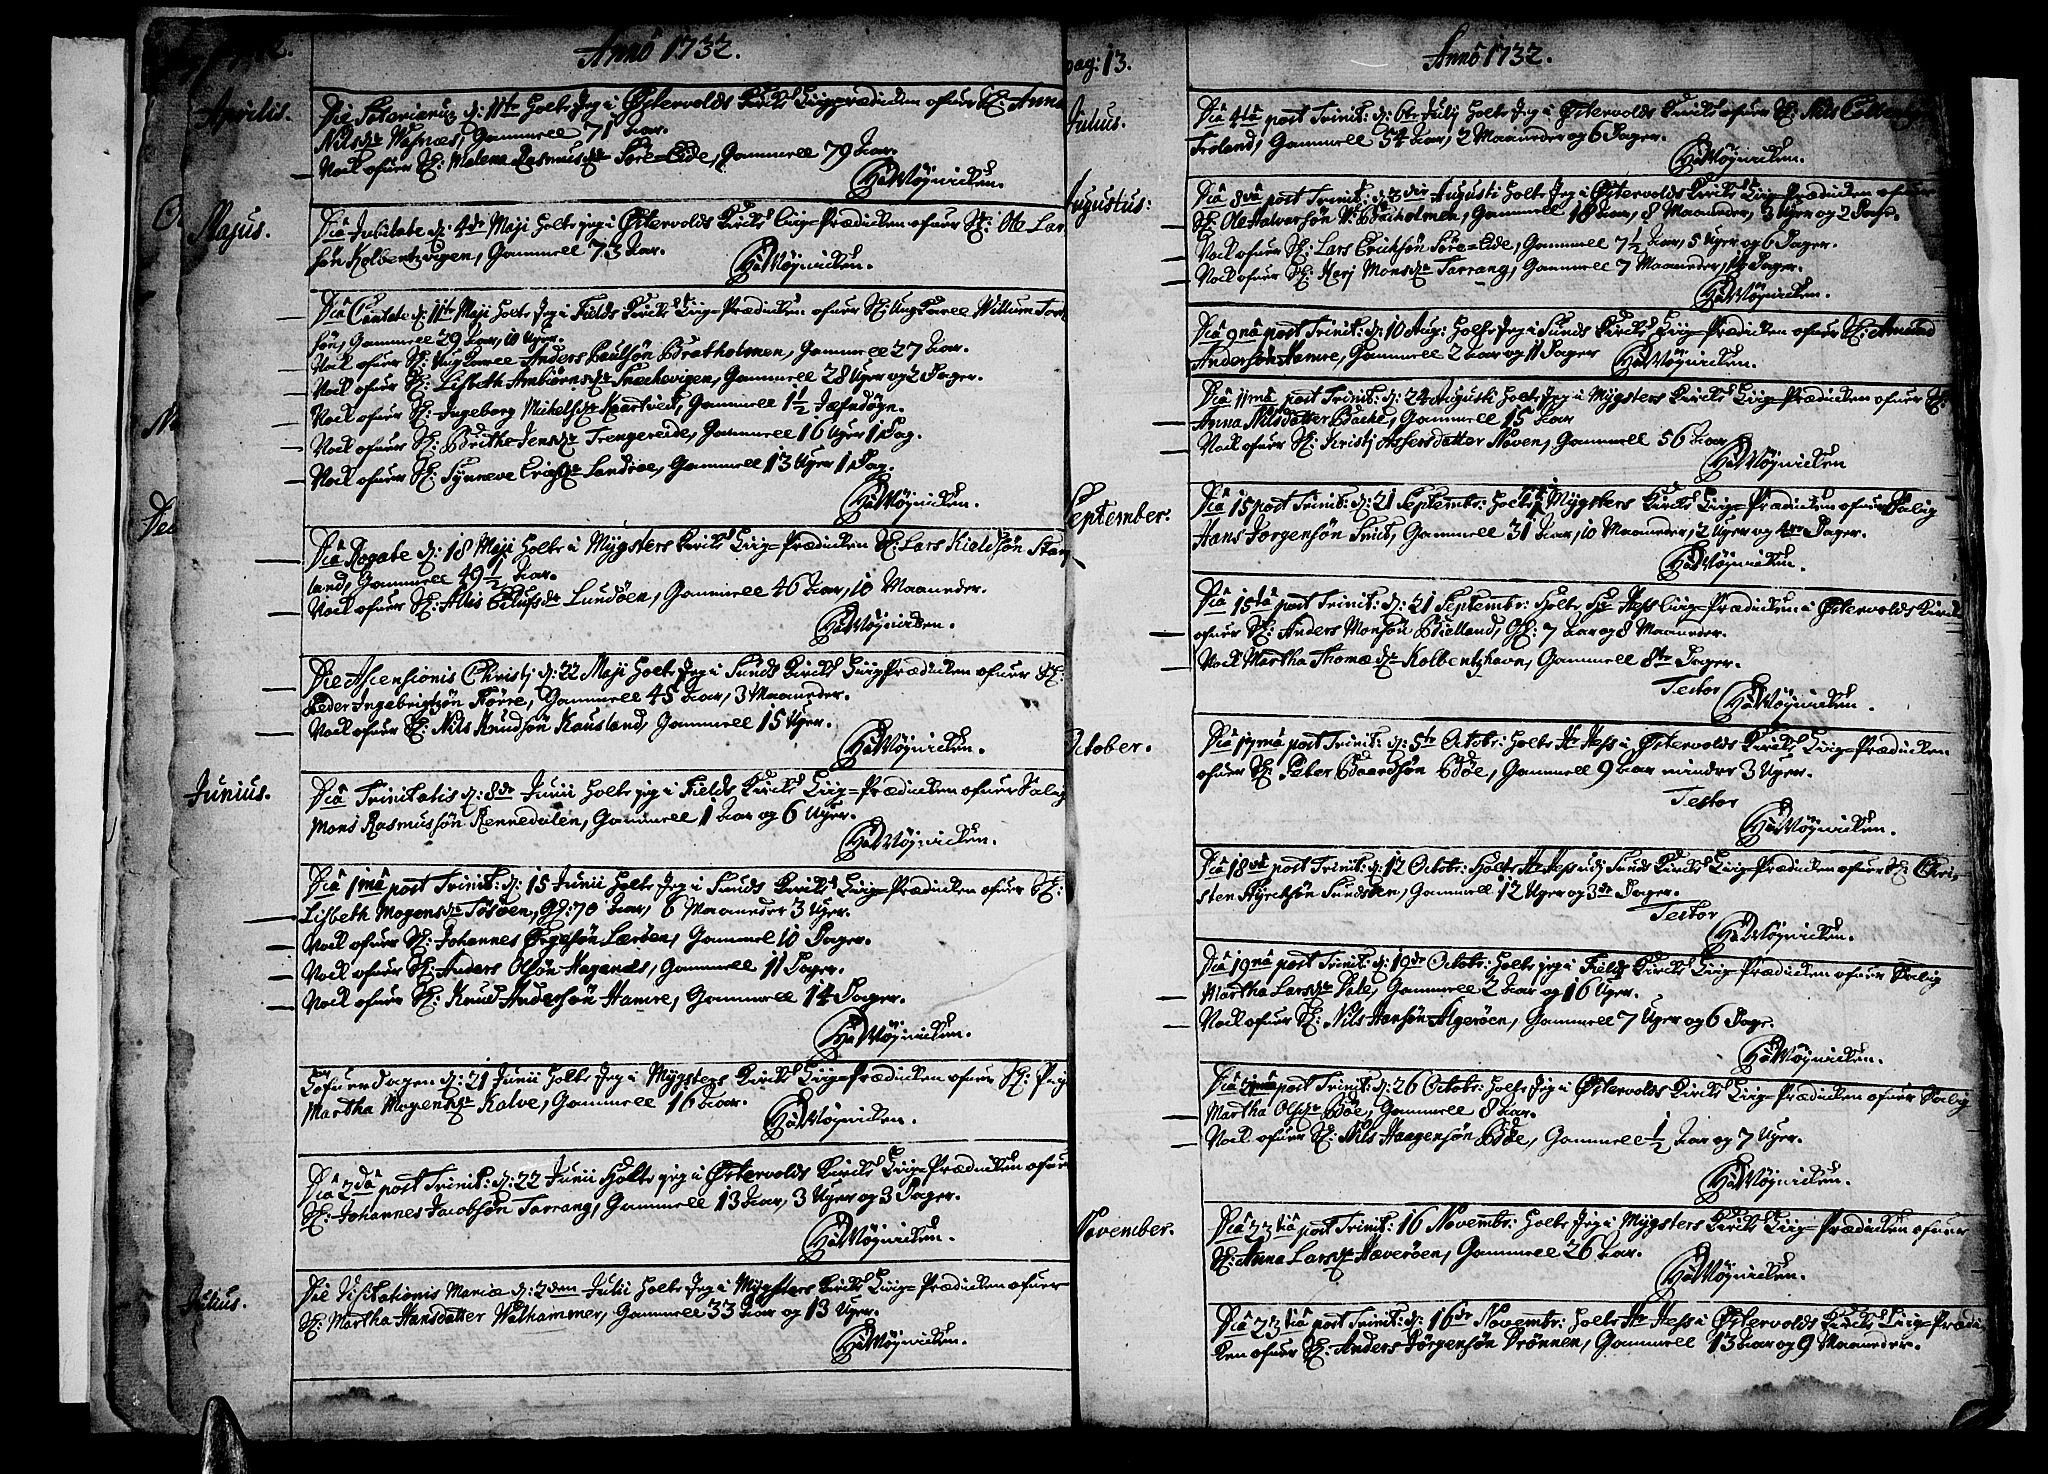 Anno 1732.
Aprilis.
d: 11te holte Jeg i Østervolds Kircke Liig-prædicken ofuer Sl: Anna
Nilsdr Wafnæs, Gammell 71 Aar.
Nock ofuer Sl: Malena Rasmusdr Søre-Eide, Gammell 79 Aar.
HWøynicken.
Majus.
Diâ Jubilate d: 4de Maji holte jeg i Østervolds Kircke Liig-Prædicken ofuer Sl: Ole Lar
søn Kolbentzvigen, Gammell 73 Aar.
HWøynicken.
Diâ Cantate d: 11te Maji holte Jeg i Fields Kircke Liig-Prædicken ofuer Sl: Ung Karll Willum
søn, Gammell 29 Aar, 10 Uger.
Nock ofuer Sl: Ung Karll Anders Paulsøn Bratholmen, Gammell 27 Aar.
Nock ofuer Sl: Lisbeth Ambiørnsdr Snechevigen, Gammell 28 Uger og 2 Dager.
Nock ofuer Sl: Ingeborg Michelsdr Kaartved, Gammell 1½ Jæfndøgn.
Nock ofuer Sl: Brithe Jensdr Trengereide, Gammell 16 Uger 1 Dag.
Nock ofuer Sl: Synneve Erichsdr Landroe, Gammell 13 Uger 1 Dag.
HWøynicken.
Diâ Rogate d: 18 Maji holte i Mygsters Kircke Liig-Prædicken Sl: Lars Kieldsøn
land, Gammell 49½ Aar.
Nock ofuer Sl: Alis Olufsdr Lundøen, Gammell 46 Aar, 10 Maaneder.
HWøynicken.
Die Ascensionis Christj d: 22 Maji holte Jeg i Sunds Kircke Liig-Prædicken ofuer Sl:
Peder Ingebrigtsøn Førre, Gammell 45 Aar, 3 Maaneder.
Nock ofuer Sl: Nils Knudsøn Kausland, Gammell 15 Uger.
HWøynicken.
Junius.
Diâ Trinitatis d: 8de Junii holte jeg i Fields Kircke Liig-Prædicken ofuer Salig
Mons Rasmussøn Rennedalen, Gammell 1 Aar og 6 Uger.
HWøynicken.
Diâ 1mâ post Trinit: d: 15 Junii holte Jeg i Sunds Kircke Liig-Prædicken ofuer Sl:
Lisbeth Mogensdr Tøsøen, Gl: 70 Aar, 6 Maaneder 3 Uger.
Nock ofuer Sl: Johannes Lærøen, Gammel 10 Dager.
Nock ofuer Sl: Anders Olsøn Haganæs, Gammell 11 Dager.
Nock ofuer Sl: Knud Andersøn Hamre, Gammell 14 Dager.
HWøynicken.
Løfuerdagen d: 21 Junii holte Jeg i Mygsters Kircke Liig-Prædicken ofuer Sl: Pig
Martha Mogensdr Kalve, Gammell 16 Aar.
HWøynicken.
Diâ 2dâ post Trinit: d: 22 Junii holte jeg i Østervolds Kircke Liig-Prædicken ofuer
Sl: Johannes Jacobsøn Tarrang, Gammell 13 Aar, 3 Uger og 3 Dager.
HWøynicken.
Julius.
Die Visitationis Mariæ d: 2den Julii holte Jeg i Mygsters Kircke Liig-Prædicken ofuer
Sl: Martha Hansdatter Walhammer, Gammell 33 Aar og 13 Uger.
HWøynicken.
pag: 13.
Anno 1732.
Julius.
Diâ 4tâ post Trinit: d: 6te July holte Jeg i Østervolds Kircke ofuer Sl: Nils
Troland, Gammell 54 Aar, 2 Maaneder og 6 Dager.
HWøynicken.
Augustus:
Diâ 8vâ post Trinit: d: 3die Augusti holte Jeg i Østervolds Kircke Liig-Prædicken ofuer
Sl: Ole Halversøn Braholmen, Gammell 18 Aar, 8 Maaneder, 3 Uger og 2 Dage.
Nock ofuer Sl: Lars Erichsøn Søre-Eide, Gammell 7½ Aar, 5 Uger og 6 Dager.
Nock ofuer Sl: Karj Monsdr Tarrang, Gammell 7 Maaneder, 14 Dager.
HWøynicken.
Diâ 9nâ post Trinit: d: 10 Aug: holte Jeg i Sunds Kircke Liig-Prædicken ofuer Sl: Amund
Andersøn Hamre, Gammell 2 Aar og 11 Dager HWøynicken.
Diâ 11mâ post Trinit: d: 24 Augusti holte Jeg i Mygsters Kircke Liig-Prædicken ofuer Sl:
Anna Nilsdatter Bache, Gammell 15 Aar
Nock ofuer Sl: Kristj Assersdatter Noven, Gammell 56 Aar
HWøynicken
September.
Diâ 15 post Trinit: d: 21 Septembr: holte Mygsters Kircke Liig-Prædicken ofuer Salig
Hans Jorgensøn Smit, Gammell 31 Aar, 10 Maaneder, 2 Uger og 4re Dager.
HWøynicken.
Diâ 15tâ post Trinit: d: 21 Septembr: holte Hr Hess Liig-Prædicken i Østervolds Kircke
ofuer Sl: Anders Monsøn Bielland, Gl: 7 Aar og 8 Maaneder.
Nock Martha Thomædr Kolbentzhavn, Gammell 8te Dager.
Testor HWøynicken.
October.
Diâ 17mâ post Trinit: d: 5te Octobr: holte Hr Hess i Østervolds Kircke Liig-Prædicken
ofuer Sl: Peder Baardsøn Bøe, Gammell 9 Aar mindre 3 Uger.
Testor
HWøynicken.
Diâ 18vâ post Trinit: d: 12 Octobr: holte Hr Hess udj Sunds Kircke Liig-Prædicken ofuer Sl: Chri-
sten Sundsten, Gammell 12 Uger og 3de Dager.
Testor
HWøynicken.
Diâ 19nâ post Trinit: d: 19de Octobr: holte jeg i Fields Kircke Liig-Prædicken ofuer Salig
Martha Larsdr Hale, Gammell 2 Aar og 16 Uger.
Nock ofuer Sl: Nils Hansøn Algerøen, Gammell 7 Uger og 6 Dage.
HWøynicken.
post Trinit: d: 26 Octobr: holte Jeg i Østervolds Kircke Liig-Prædicken ofuer Salig
Martha Olsdr Bøe, Gammell 8 Aar.
Nock ofuer Sl: Nils Haagensøn Bøe, Gammell 1½ Aar og 7 Uger.
HWøynicken.
November.
Diâ 23tiâ post Trinit: 16 Novembr: holte Jeg i Mygsters Kircke Liig-Prædicken ofuer
Sl: Anna Larsdr Hæverøen, Gammell 26 Aar.
HWøynicken.
Diâ 23tiâ post Trinit: d: 16de Novembr: holte Hr Hess i Østervolds Kircke Liig-Prædi
cken ofuer Sl: Anders Jørgensøn Drønnen, Gammell 13 Aar og 9 Maaneder.